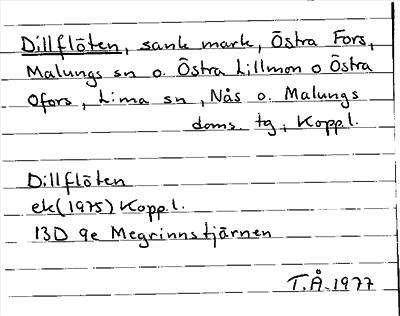 Dillflöten, sank mark, Östra Fors,
Malungs sn o. Östra Lillmon o Östra
Ofors, Lima sn, Nås o. Malungs
doms. tg, Kopp.l.
Dillflöten
ek (1975) Kopp.l.
13D 9e Megrinnstjärnen
T.Å. 1977